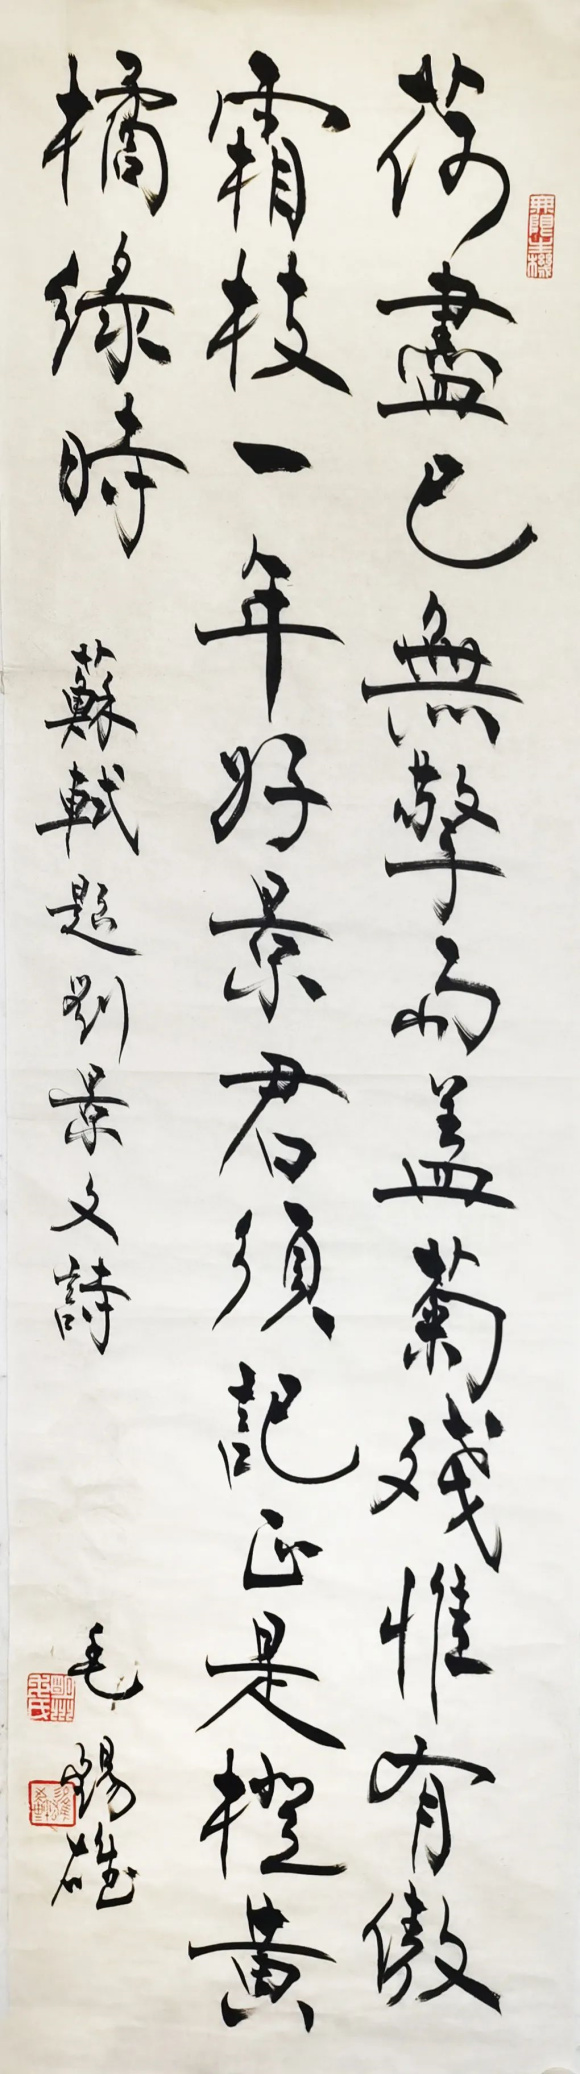 無限生機
荷盡已無擎雨盖菊殘惟有傲
霜枝一年好景君須記正是橙黃
橘綠時 蘇軾題劉景文詩 毛錫雄